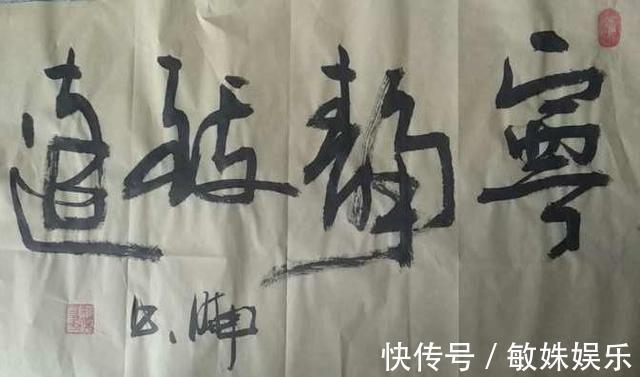 寧静致遠
快传号 / 敏姝娱乐